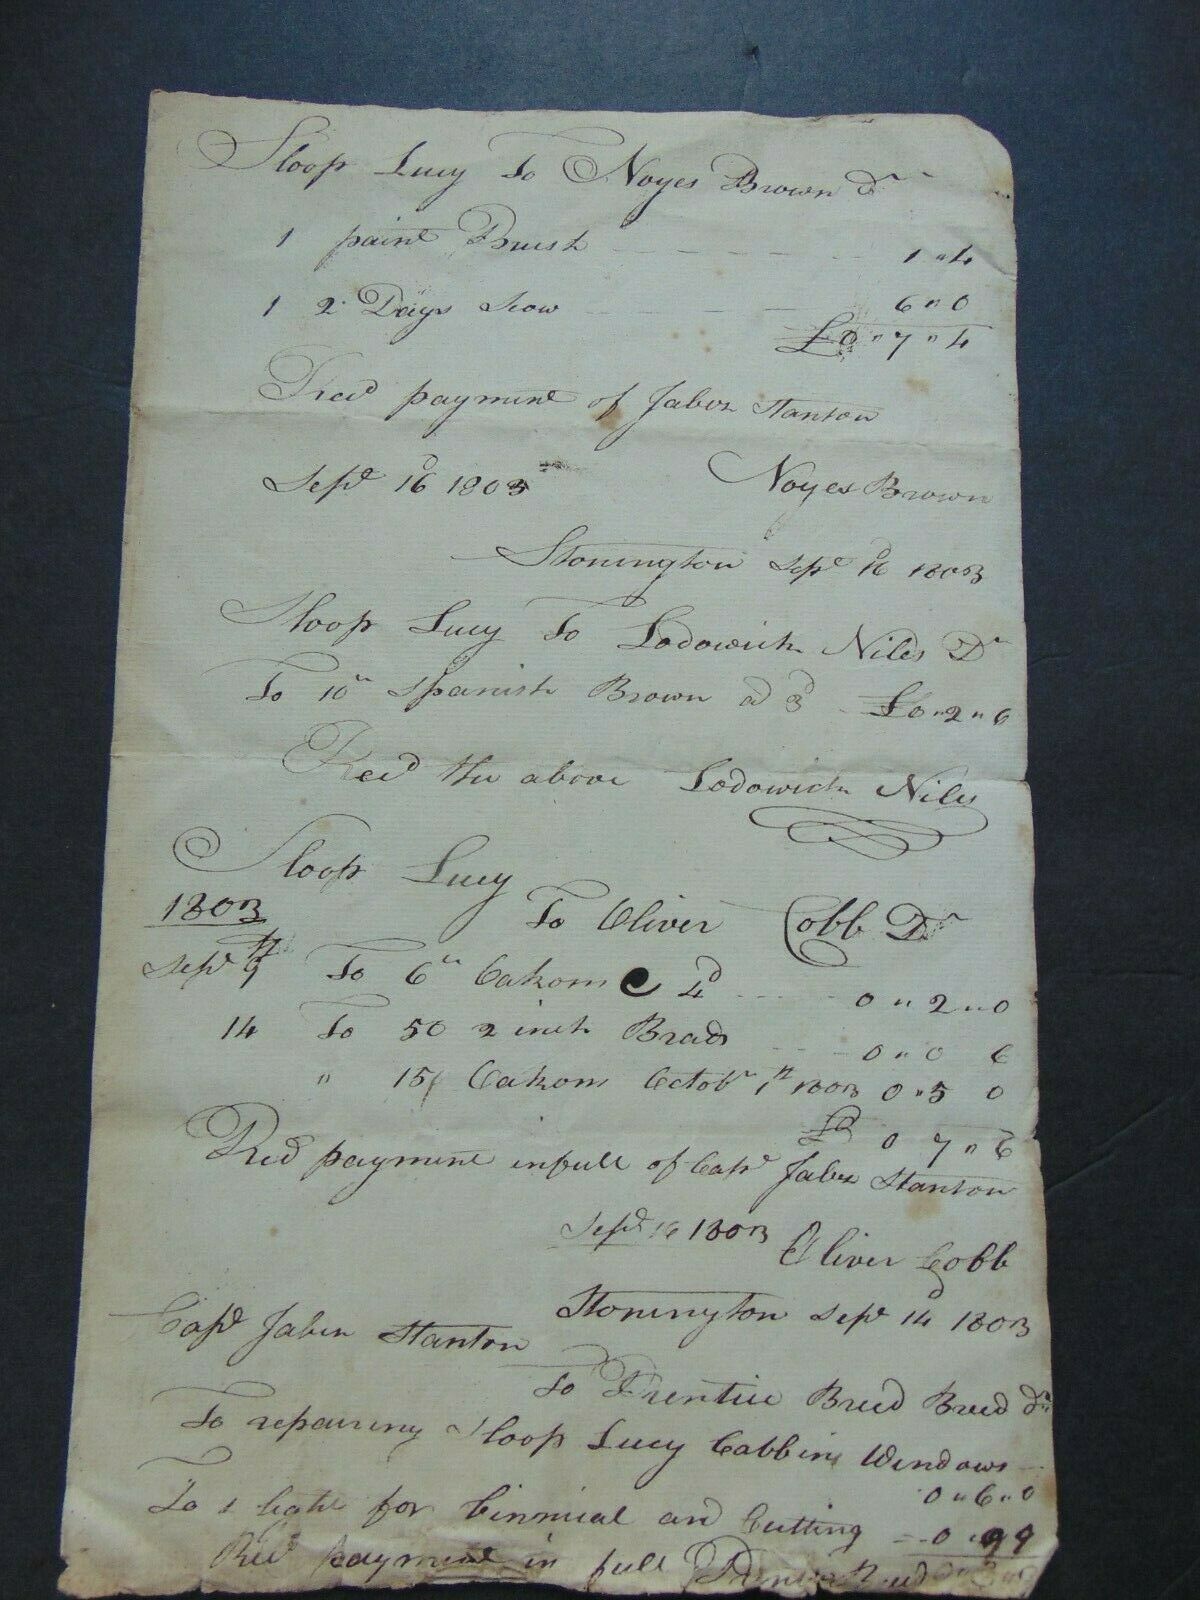 Sloop Lucy To Noyes Brown Dr
1 paint Brush 1 " 4
1 2 Days Scow 6 " 0
£0 " 7 " 4
Recd payment of Jabez Stanton
Sept 16d 1803 Noyes Brown
Stonington Sept 16d 1803
Sloop Lucy To Lodowick Niles Dr
To 10 lb Spanish Brown a 3d £0 " 2 " 6
Recd the above Lodowick Niles
Sloop Lucy
1803 To Oliver Cobb Dr
Sept 9th To 6 lb Oakom @ 4d 0 " 2 " 0
14 To 50 2 inch Brads 0 " 0 6
" 15 Oakom Octobr 1st 1803 0 " 5 0
£ 0 7 " 6
Recd payment in full of Capt Jabez Stanton
Sept 16 1803 Oliver Cobb
Stonington Sept 14d 1803
Capt Jabez Stanton
To Prentice Breed Breed Dr
To repairing Sloop Lucy Cabbin Windows
0 " 6 " 0
To for and Cutting 0 " 9
Recd payment in full